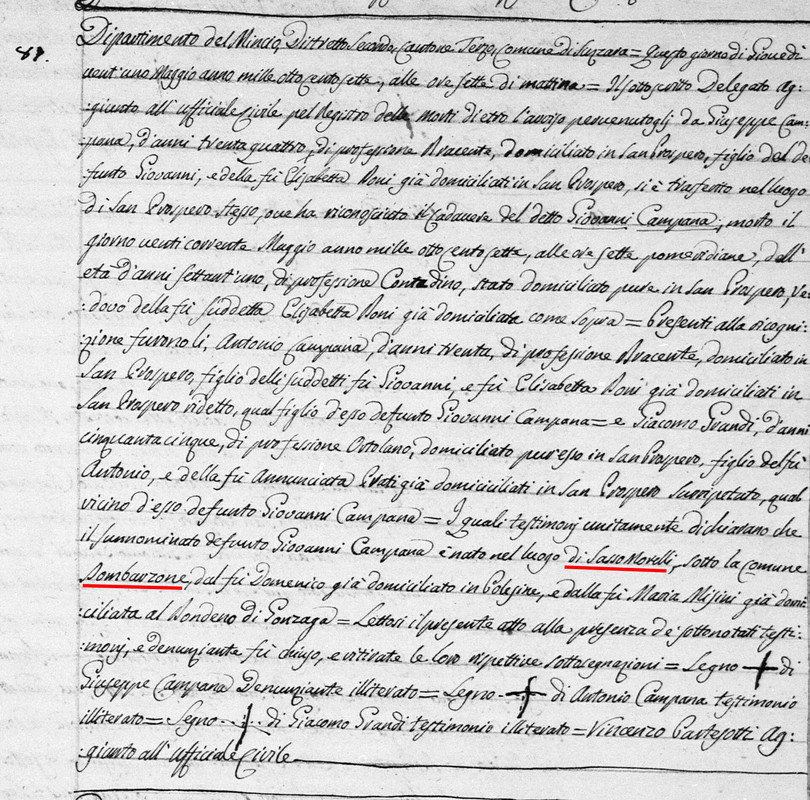 87.
Dipartimento del Mincio, Distretto Secondo, Cantone Terzo, Comune di Suzzara = Questo giorno di Giovedi
vent'uno Maggio anno mille otto cento sette, alle ore sette di mattina = Il sottoscritto Delegato Ag:
:giunto all'Ufficiale Civile pel Registro delle morti dietro l'avviso pervenutogli da Giuseppe Cam:
:pana, d'anni trenta quattro, di professione Bracente, domiciliato in San Prospero, figlio del de
funto Giovanni, e della fù Elisabetta Boni già domiciliati in San Prospero, si è trasferito nel luogo
di San Prospero stesso, ove ha riconosciuto il Cadavere del detto Giovanni Campana, morto il
giorno venti corrente Maggio anno mille otto cento sette, alle ore sette pomeridiane, dell'
età d'anni settant'uno, di professione Contadino, stato domiciliato pure in San Prospero, Ve:
:dovo della fù suddetta Elisabetta Boni già domiciliata come sopra = Presenti alla ricogni:
:zione furono li, Antonio Campana, d'anni trenta, di professione Bracente, domiciliato in
San Prospero, figlio delli suddetti fù Giovanni, e fù Elisabetta Boni già domiciliati in
San Prospero ridetto, qual figlio d'esso defunto Giovanni Campana = e Giacomo Grandi, d'anni
cinquanta cinque, di professione Ortolano, domiciliato pur esso in San Prospero, figlio del fù
Antonio, e della fù Annunciata Prati già domiciliati in San Prospero surriputato, qual
vicino d'esso defunto Giovanni Campana = I quali testimonj unitamente dichiarano che
il sunnominato defunto Giovanni Campana è nato nel luogo di Sasso Morelli, sotto la comune
Sombarzone, dal fù Domenico già domiciliato in Polesine, e dalla fù Maria Misini già domi:
:ciliata al Bondeno di Gonzaga = Lettosi il presente atto alla presenza de' sottonotati testi:
:monj, e denunziante fù chiuso, e ritirate le loro rispettive sottosegnazioni = Segno + di
Giuseppe Campana Denunziante illiterato = Segno + di Antonio Campana testimonio
illiterato = Segno + di Giacomo Grandi testimonio illiterato = Vincenzo Partesotti Ag:
:giunto all'Ufficiale Civile